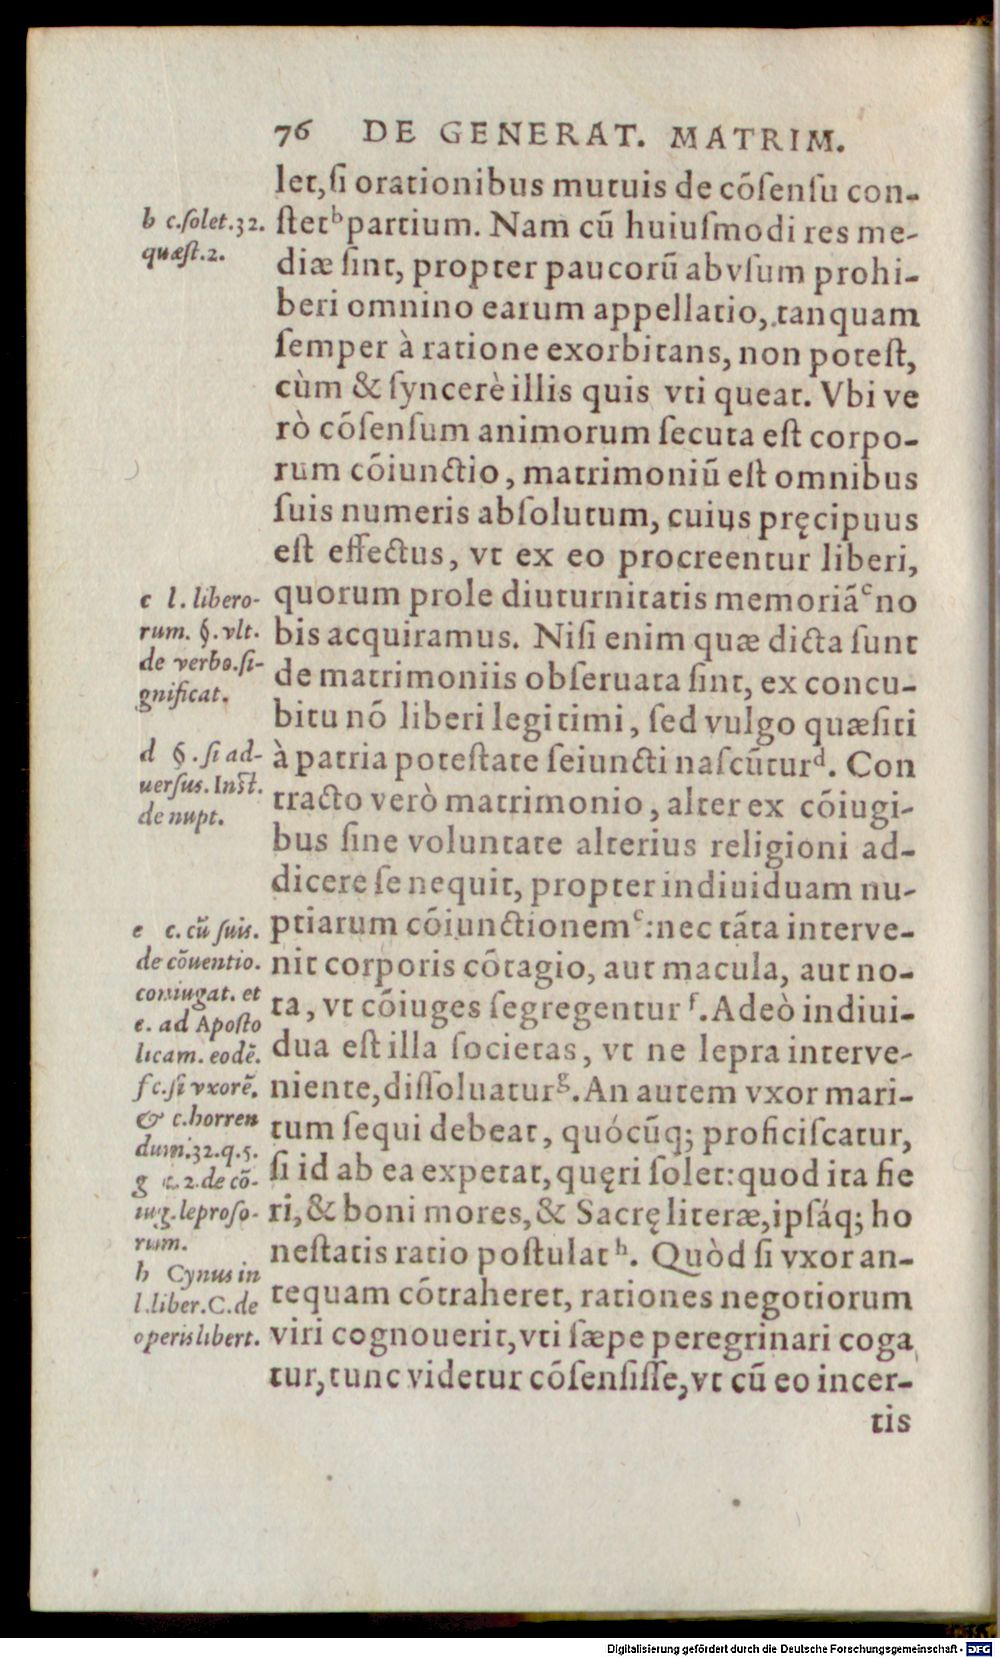 76 DE GENERAT. MATRIM.
let, ſi orationibus mutuis de cõſenſu con-
ſtet b partium. Nam cũ huiuſmodi res me-
diæ ſint, propter paucorũ abvſum prohi-
beri omnino earum appellatio, tanquam
ſemper à ratione exorbitans, non poteſt,
cùm & ſyncerè illis quis vti queat. Vbi ve
rò cõſenſum animorum ſecuta eſt corpo-
rum cõiunctio, matrimoniũ eſt omnibus
ſuis numeris abſolutum, cuius pręcipuus
eſt effectus, vt ex eo procreentur liberi,
quorum prole diuturnitatis memoriã c no
bis acquiramus. Niſi enim quæ dicta ſunt
de matrimoniis obſeruata ſint, ex concu-
bitu nõ liberi legitimi, ſed vulgo quæſiti
à patria poteſtate ſeiuncti naſcũtur d. Con
tracto verò matrimonio, alter ex cõiugi-
bus ſine voluntate alterius religioni ad-
dicere ſe nequit, propter indiuiduam nu-
ptiarum cõiunctionem e: nec tãta interve-
nit corporis cõtagio, aut macula, aut no-
ta, vt cõiuges ſegregentur f. Adeò indiui-
dua eſt illa ſocietas, vt ne lepra interve-
niente, diſſoluatur g. An autem vxor mari-
tum ſequi debeat, quócũq; proficiſcatur,
ſi id ab ea expetat, quęri ſolet: quod ita fie
ri, & boni mores, & Sacrę literæ, ipſáq; ho
neſtatis ratio poſtulat h. Quòd ſi vxor an-
tequam cõtraheret, rationes negotiorum
viri cognouerit, vti ſæpe peregrinari coga
tur, tunc videtur cõſenſiſſe, vt cũ eo incer-
tis
b c.ſolet.32.
quæſt.2.
c l. libero-
rum. §. vlt.
de verbo.ſi-
gnificat.
d §. ſi ad-
uerſus. Inſt.
de nupt.
e c. cũ ſuis.
de cõuentio.
coniugat. et
c. ad Apoſto
licam. eodẽ.
f c. ſi vxorẽ.
& c. horren
dum. 32.q.5.
g c. 2. de cõ-
iug. leproſo-
rum.
h Cynus in
l. liber. C. de
operis libert.
Digitalisierung gefördert durch die Deutsche Forschungsgemeinschaft - DFG